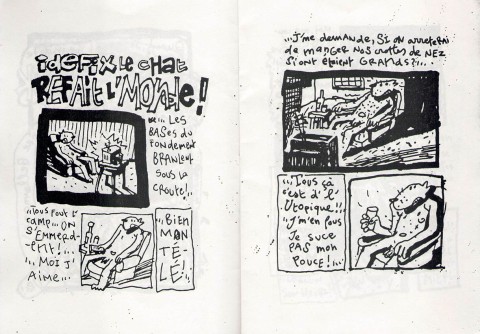 idéfix le chat
REFAIT L'MONDE!
... LES
BASES DU
FONDEMENT
BRANLENT
SOUS LA
CROUTE!..
...TOUS FOUT L'
CAMP... ON
S'EMMERDE
...MOI J'
AIME...
...BIEN
MON
TÉ
LÉ!
...J'me demande, Si ON arreterai
de manger NOS crottes de NEZ
Si ont étaient GRANDS?!...
...Tous çà
c'est d'l'
Utopique!!
J'm'en fous
Je suce
PAS mon
POUCE!